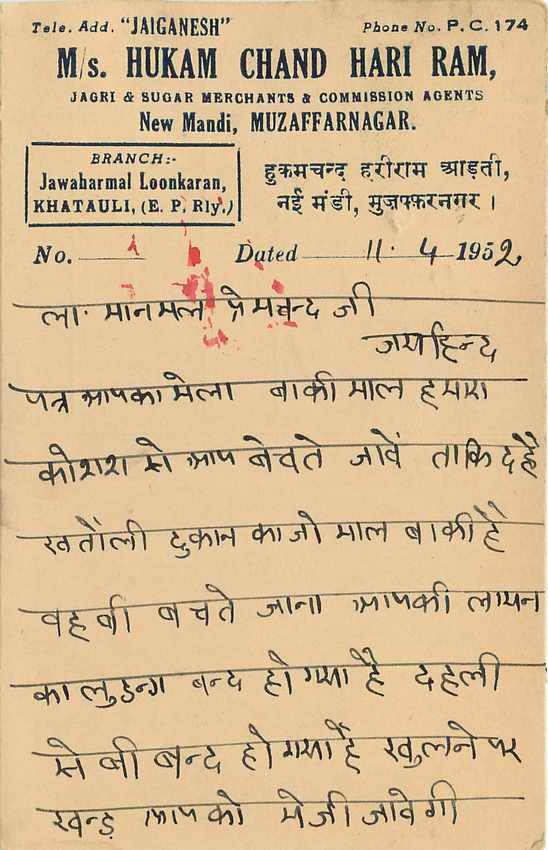 Tele. Add. "JAIGANESH" Phone No. P.C. 174
M/s. HUKAM CHAND HARI RAM,
JAGRI & SUGAR MERCHANTS & COMMISSION AGENTS
New Mandi, MUZAFFARNAGAR.
BRANCH:-
Jawaharmal Loonkaran,
KHATAULI, (E. P. Rly.)
हुकमचन्द हरीराम आड़ती,
नई मंडी, मुज़फ्फ़रनगर ।
No. Dated 11. 4 1952
ला. मानमल प्रेमचन्द जी
जयहिन्द
पत्र आपका मेला बाकी माल हमारा
कोशश से आप बेचते जावें ताकि
खतौली दुकान का जो माल बाकी है
वह बी बचते जाना आपकी लायन
का लुडन्ग बन्द हो गया है दहली
से बी बन्द हो गया है खुलने पर
खन्ड़ आपको मेजी जावेगी